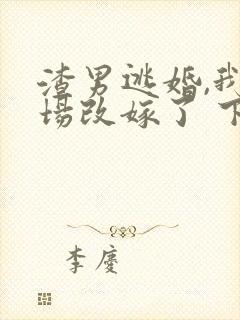 渣男逃婚,我
场改嫁了 下
李廖